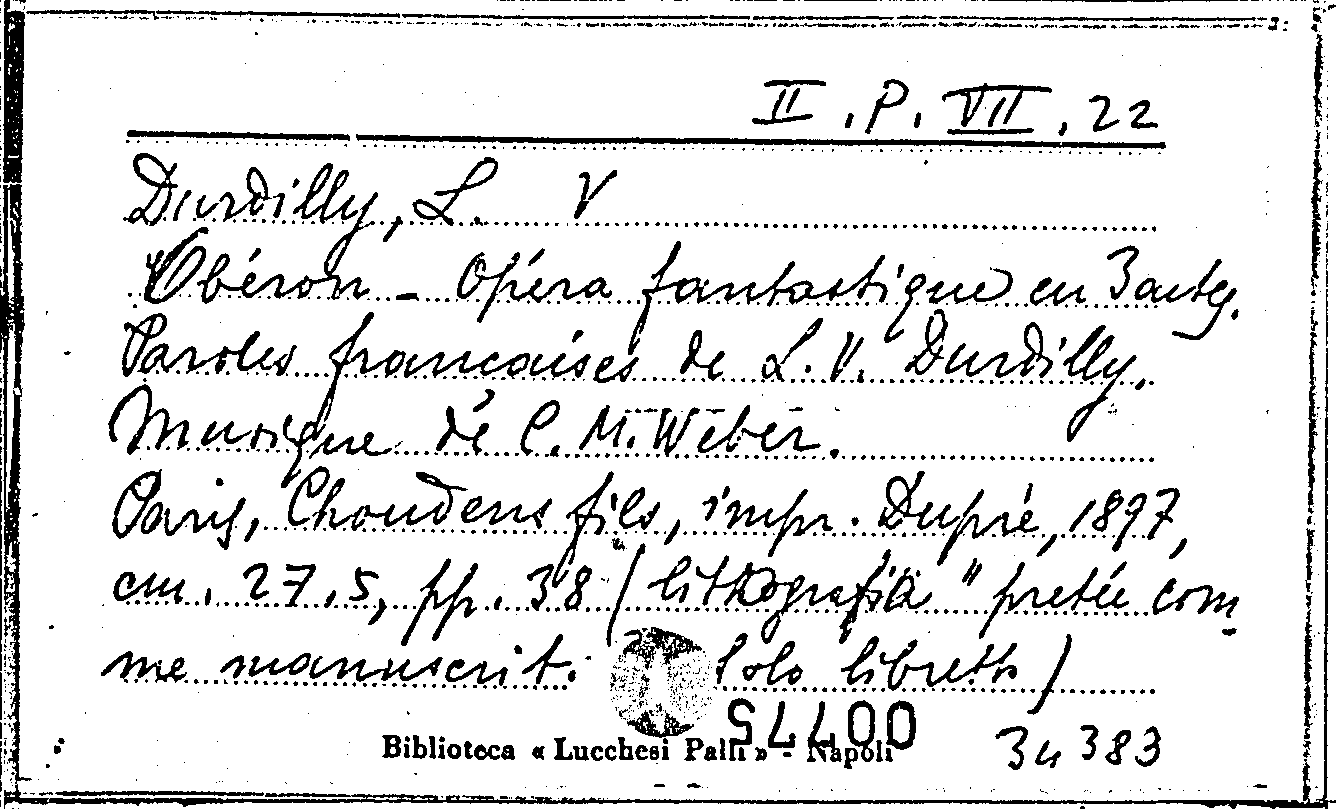 II. P. VII. 22
Durdilly, L. V
Obéron - Opéra fantastique en 3 actes.
Paroles francaises de L. V. Durdilly.
Musique de C. M. Weber.
Paris, Choudens fils, impr. Dupré, 1897,
cm. 27.5, pp. 38 (lithografia " pretée com-
me manuscrit. solo libretto)
00775
Biblioteca « Lucchesi Palli » - Napoli
34383